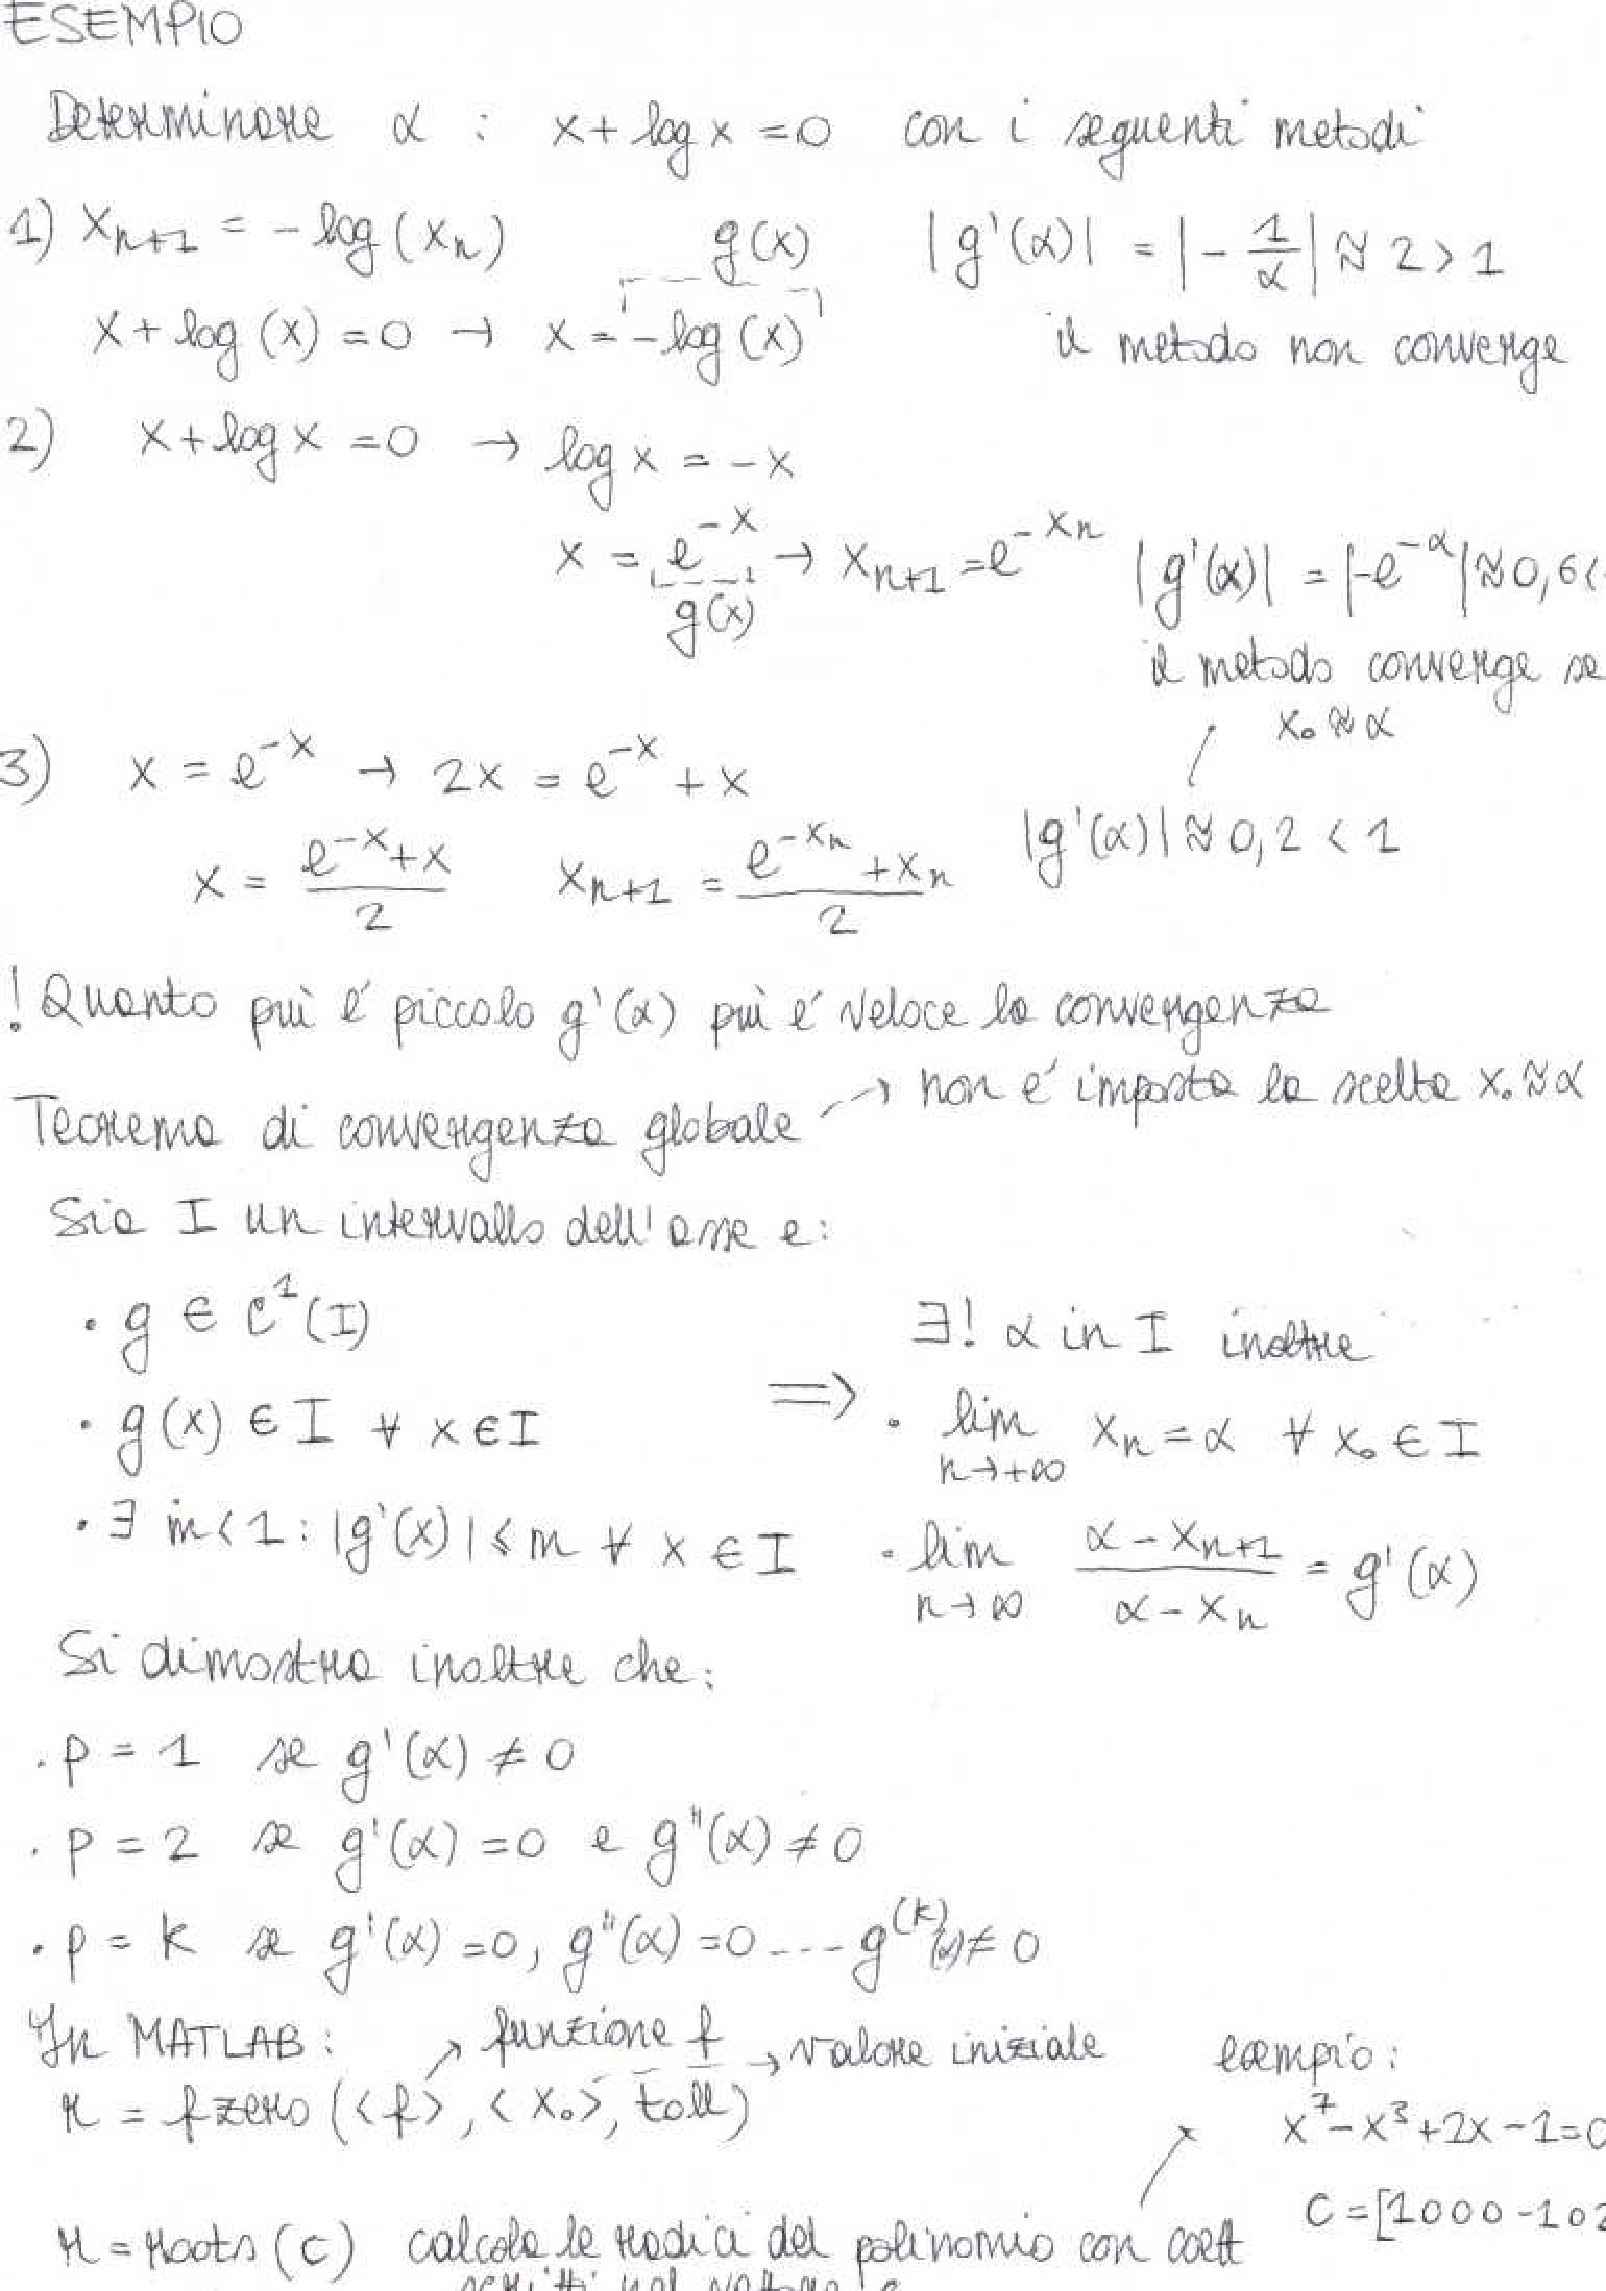 ESEMPIO
Determinare α : x + log x = 0 con i seguenti metodi
1) xₙ₊₁ = - log(xₙ) g(x) |g'(α)| = |- 1/α| ≈ 2 > 1
x + log(x) = 0 → x = -log(x) il metodo non converge
2) x + log x = 0 → log x = -x
x = e^-x → xₙ₊₁ = e^-xₙ |g'(α)| = |-e^-α| ≈ 0,6 <
g(x)
il metodo converge se
x₀ ≈ α
3) x = e^-x → 2x = e^-x + x
x = (e^-x + x)/2 xₙ₊₁ = (e^-xₙ + xₙ)/2 |g'(α)| ≈ 0,2 < 1
! Quanto più é piccolo g'(α) più é veloce la convergenza
Teorema di convergenza globale → non é imposta la scelta x₀ ≈ α
Sia I un intervallo dell'asse e:
· g ∈ C¹(I)
∃! α in I inoltre
· g(x) ∈ I ∀ x ∈ I ⇒ · lim n→+∞ xₙ = α ∀ x₀ ∈ I
· ∃ m < 1 : |g'(x)| ≤ m ∀ x ∈ I · lim n→∞ (α - xₙ₊₁)/(α - xₙ) = g'(α)
Si dimostra inoltre che:
· p = 1 se g'(α) ≠ 0
· p = 2 se g'(α) = 0 e g''(α) ≠ 0
· p = k se g'(α) = 0, g''(α) = 0 ---- g^(k)(α) ≠ 0
In MATLAB: → funzione f → valore iniziale esempio:
r = fzero(<f>, <x₀>, toll) x⁷ - x³ + 2x - 1 = 0
C = [1 0 0 0 -1 0 2
r = roots(c) calcola le radici del polinomio con coeff
scritti nel vettore c